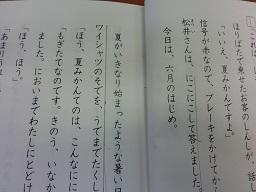 「これは、レ
ほりばたで乗せたお客のしんしが、話し
「いいえ、夏みかんですよ。」
信号が赤なので、ブレーキをかけてから、
松井さんは、にこにこして答えました。
今日は、六月のはじめ。
夏がいきなり始まったような暑い日
ワイシャツのそでを、うでまでたくし
「ほう、夏みかんてのは、こんなにに
「もぎたてなのです。きのう、いなか
ました。においまでわたしにとどけ
「ほう、ほう。」
「あまりうれし